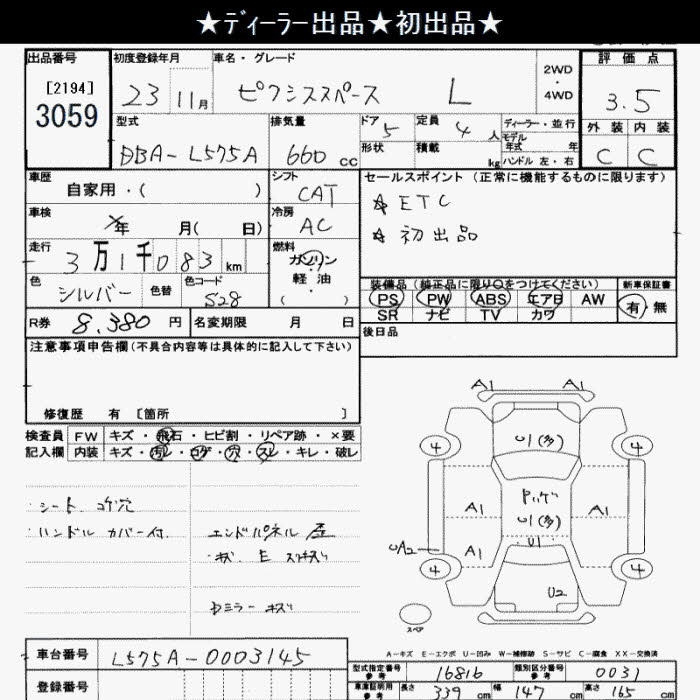 ★ディーラー出品★初出品★
出品番号
[2194]
3059
初度登録年月 車名・グレード
23 11月 ピクシススペース L
2WD
・
4WD
評価点
3.5
外装 内装
C C
型式 排気量 ドア 定員 ディーラー・並行
DBA-L575A 660 cc 5 4 人
モデル
年式 年
形状 積載 kg ハンドル 左・右
車歴 シフト
自家用・( ) CAT
車検 冷房
年 月( 日) AC
走行 燃料
3万1千083 km ガソリン
軽油
( )
色 色替 色コード
シルバー S28
R券 8,380 円 名変期限 月 日
セールスポイント(正常に機能するものに限ります)
☆ ETC
☆ 初出品
装備品(純正品に限り○をつけてください) 新車保証書
PS PW ABS エアB AW 有・無
SR ナビ TV カワ
後日品
注意事項申告欄(不具合内容等は具体的に記入して下さい)
修復歴 有 [箇所 ]
検査員 FW キズ・飛石・ヒビ割・リペア跡・×要
記入欄 内装 キズ・汚レ・コゲ・穴・スレ・キレ・破レ
・シート コゲ穴
・ハンドル カバー付
エンドパネル 歪
・キズ E スリキズ
Dミラー キズ
A1 A1
4 U1(多) 4
A1 Pハゲ A1
U1(多)
UA2 A1 U1
4 4
U2
スペア
A-キズ E-エクボ U-凹み W-補修跡 S-サビ C-腐食 XX-交換済
車台番号 L575A-0003145
登録番号
型式指定番号 参考 16816 類別区分番号 参考 0031
車庫証明用 参考 長さ 339 cm 幅 147 cm 高さ 165 cm